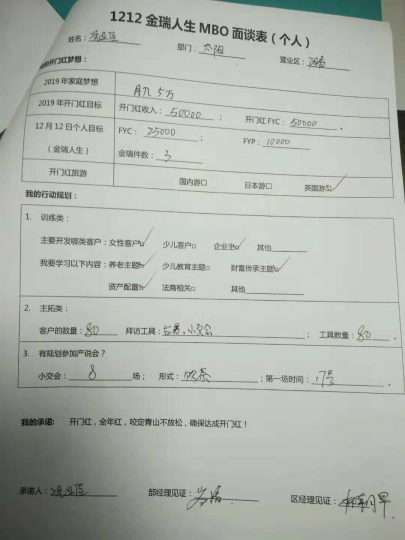 1212 金瑞人生 MBO 面谈表（个人）
姓名： 部门：太阳 营业区：
开门红梦想：
2019 年家庭梦想 月入5万
2019 年开门红目标 开门红收入：50000； 开门红 FYC：50000.
12 月 12 日个人目标 FYC：25000； FYP：10000
（金瑞人生） 金瑞件数：3
开门红旅游 国内游□ 日本游□ 英国游☑
我的行动规划：
1. 训练类：
主要开发哪类客户：女性客户☑ 少儿客户□ 企业主☑ 其他
我要学习以下内容：养老主题☑ 少儿教育主题□ 财富传承主题☑
资产配置☑ 法商相关□ 其他
2. 主拓类：
客户的数量：80 拜访工具：台历、小交会； 工具数量：80.
3. 有规划参加产说会？
小交会：8 场； 形式：饮茶；第一场时间：17号
我的承诺： 开门红，全年红，咬定青山不放松，确保达成开门红！
承诺人： 部经理见证： 区经理见证：